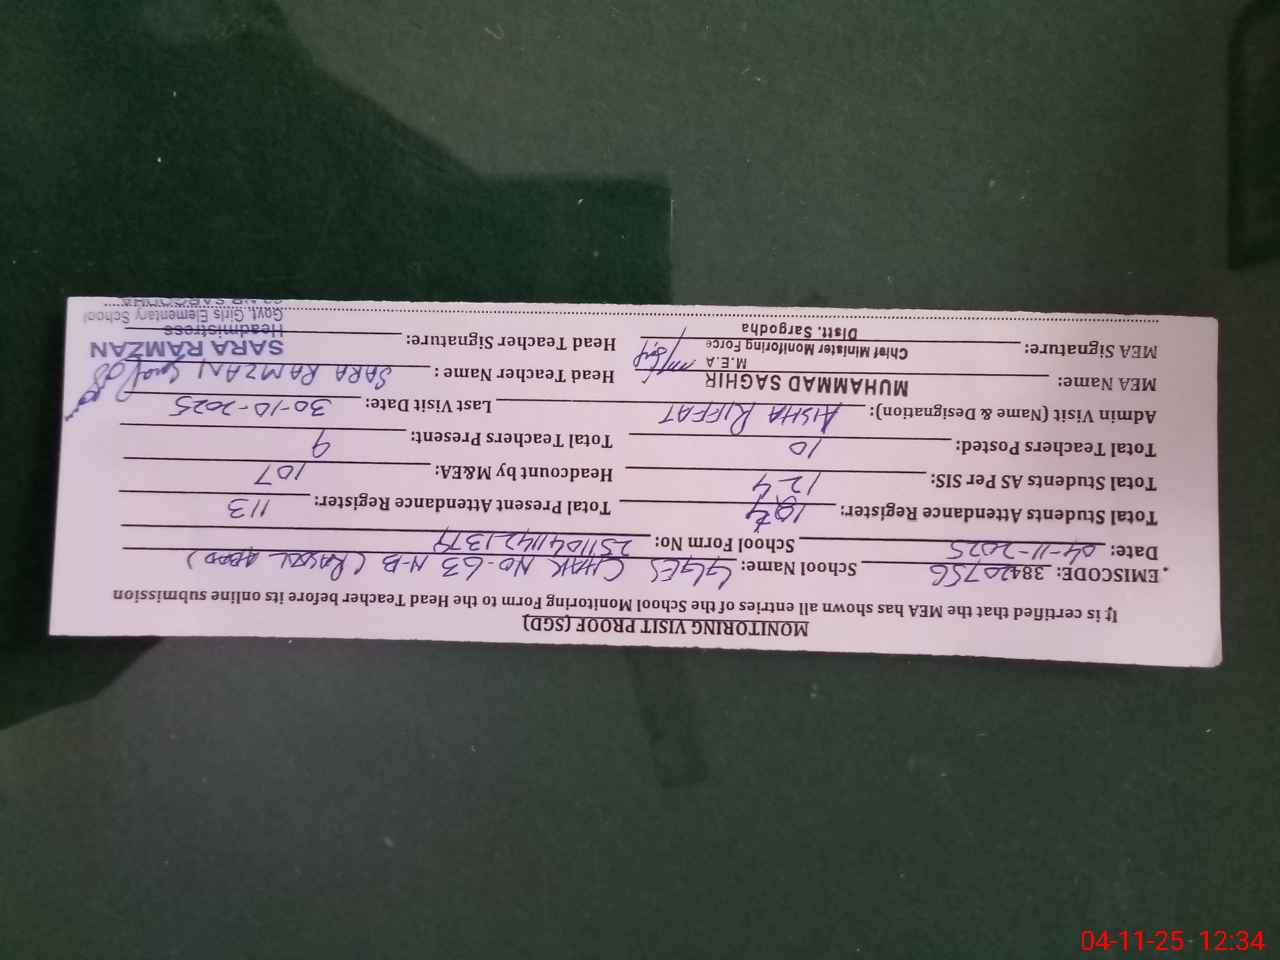 MONITORING VISIT PROOF (SGD)
It is certified that the MEA has shown all entries of the School Monitoring Form to the Head Teacher before its online submission
EMISCODE: 38420756 School Name: GGES CHAK NO-63 N-B (RASUL ABAD)
Date: 04-11-2025 School Form No: 25110411421379
Total Students Attendance Register: 124 Total Present Attendance Register: 113
Total Students AS Per SIS: 124 Headcount by M&EA: 107
Total Teachers Posted: 10 Total Teachers Present: 9
Admin Visit (Name & Designation): AISHA RIFFAT Last Visit Date: 30-10-2025
MEA Name: MUHAMMAD SAGHIR Head Teacher Name: SARA RAMZAN
M.E.A
MEA Signature: Chief Minister Monitoring Force Head Teacher Signature: SARA RAMZAN
Distt. Sargodha Headmistress
Govt. Girls Elementary School
63 NB SARGODHA
04-11-25 12:34